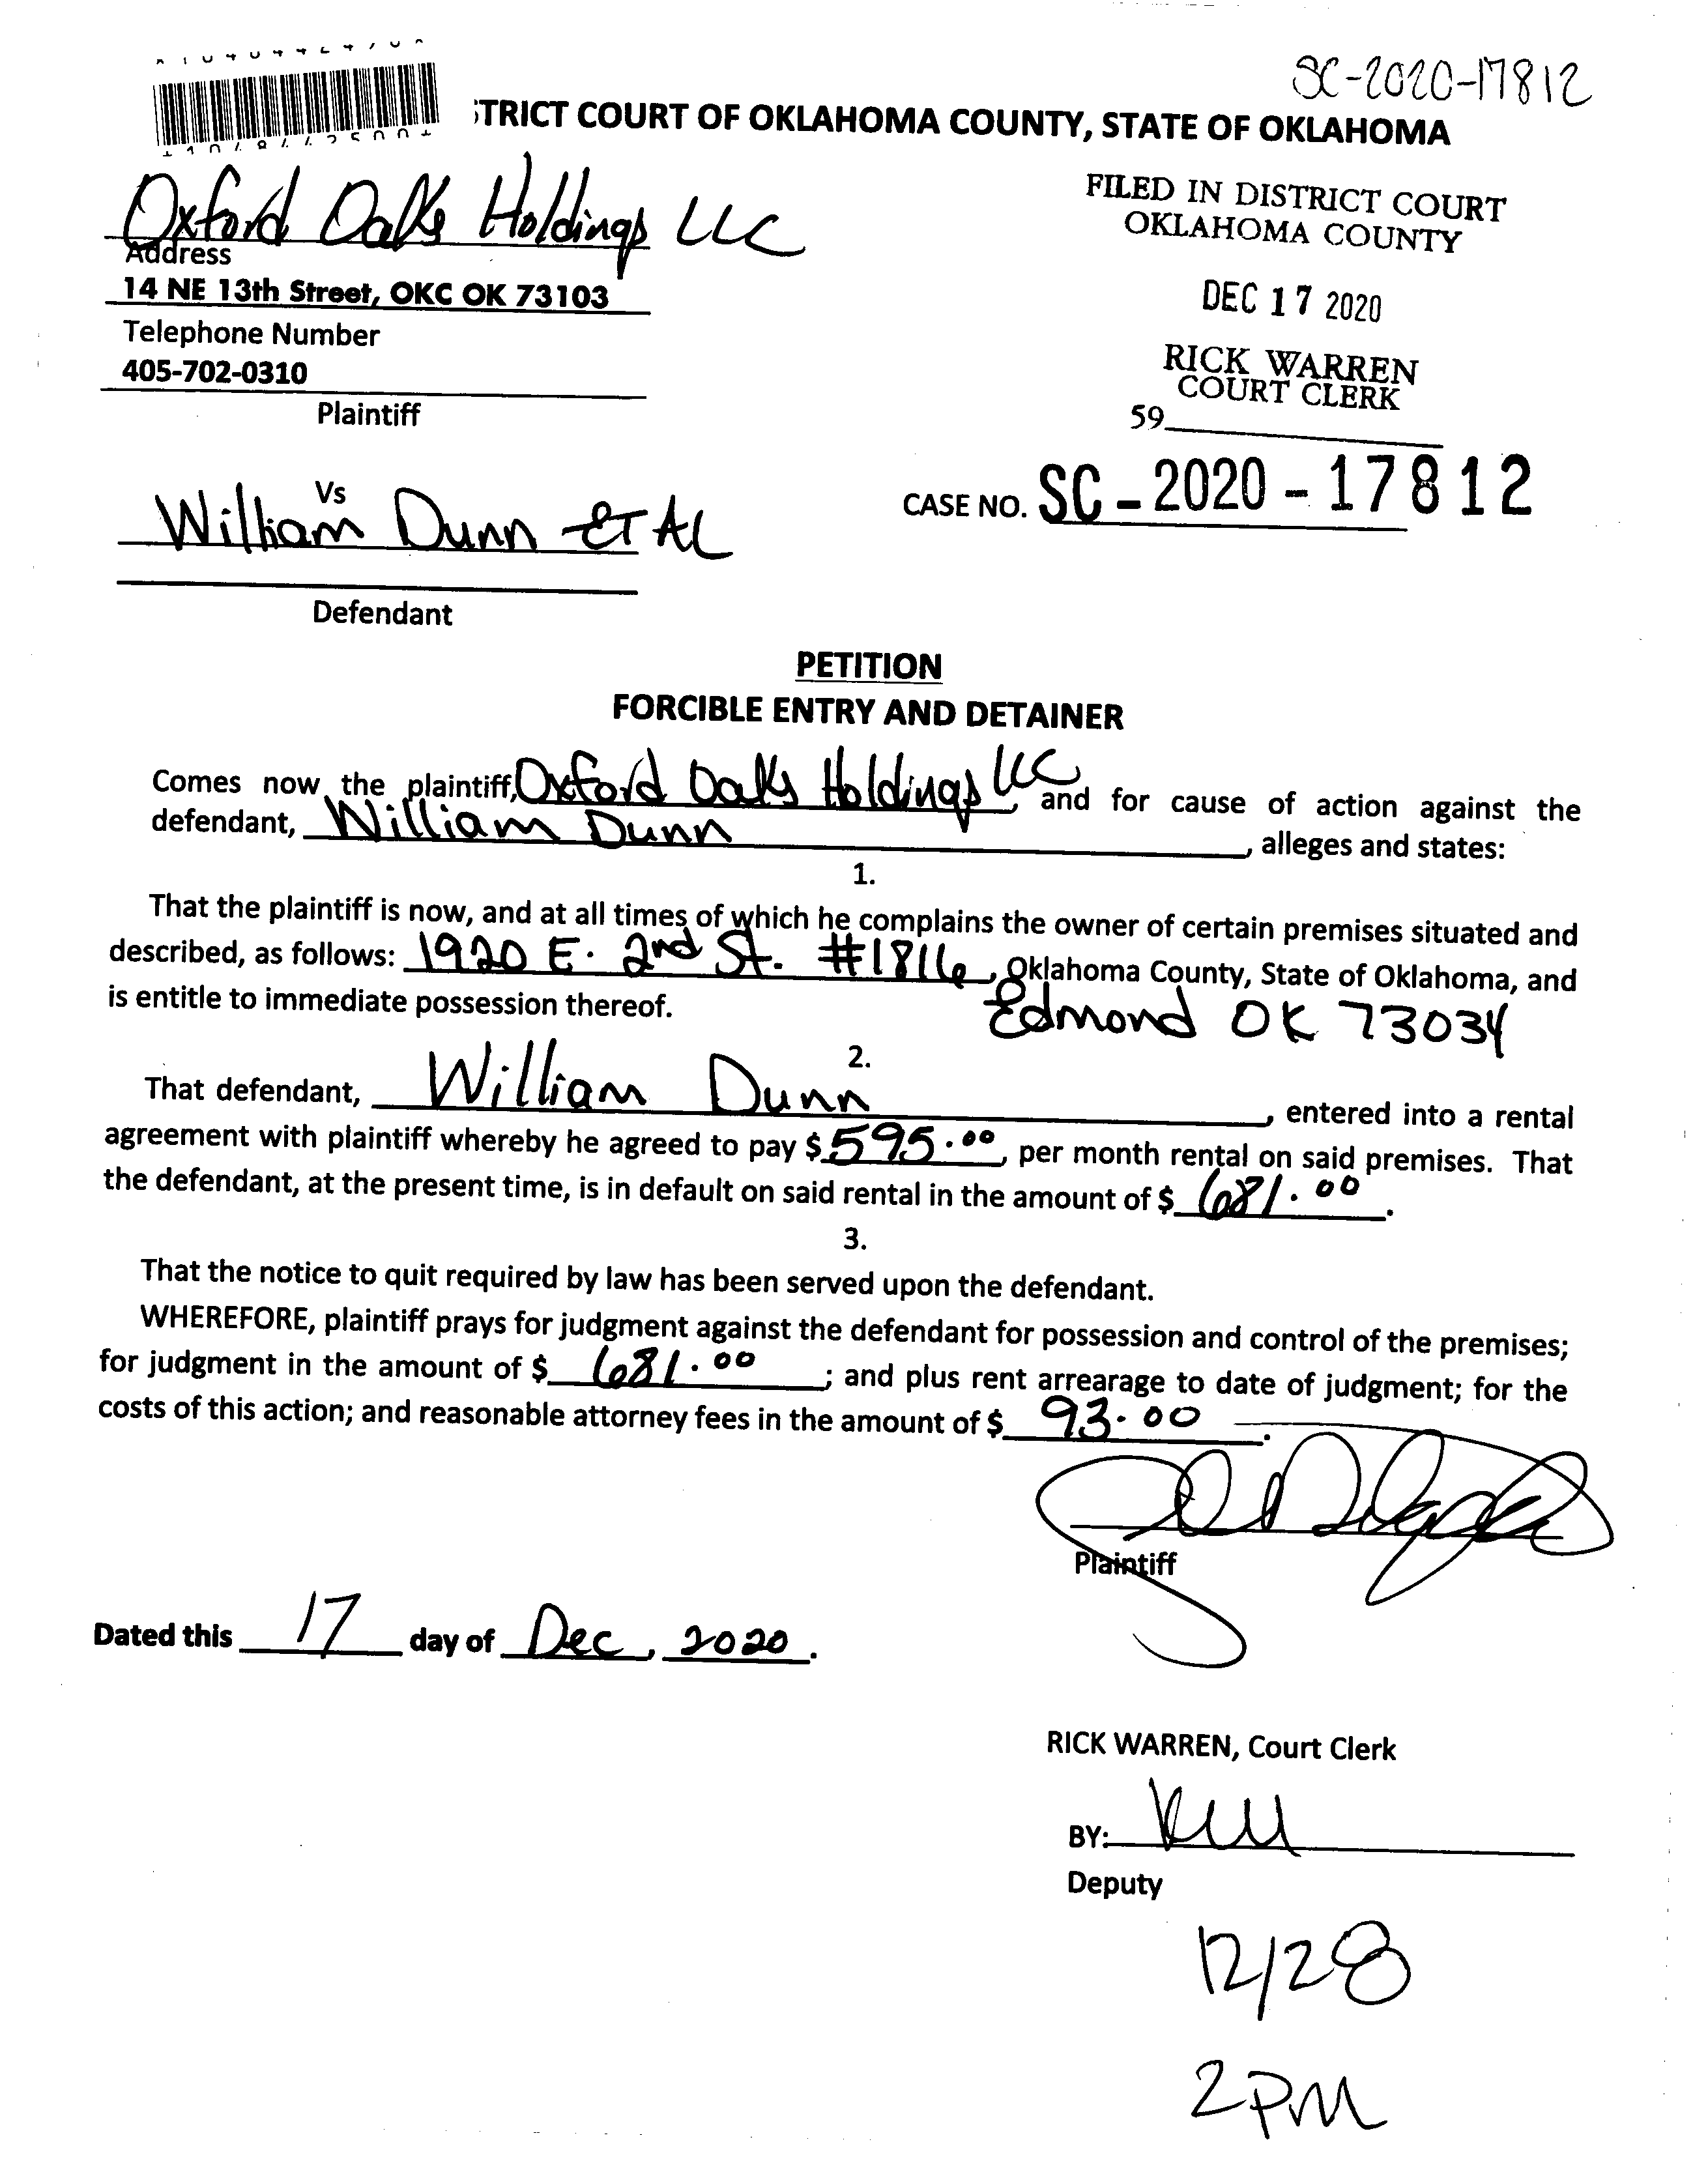 SC-2020-17812
TRICT COURT OF OKLAHOMA COUNTY, STATE OF OKLAHOMA
Oxford Oaks Holdings LLC
Address
14 NE 13th Street, OKC OK 73103
Telephone Number
405-702-0310
Plaintiff
FILED IN DISTRICT COURT
OKLAHOMA COUNTY
DEC 17 2020
RICK WARREN
COURT CLERK
59
CASE NO. SC-2020-17812
Vs
William Dunn ET AL
Defendant
PETITION
FORCIBLE ENTRY AND DETAINER
Comes now the plaintiff, Oxford Oaks Holdings LLC, and for cause of action against the
defendant, William Dunn, alleges and states:
1.
That the plaintiff is now, and at all times of which he complains the owner of certain premises situated and
described, as follows: 1920 E. 2nd St. #1816, Oklahoma County, State of Oklahoma, and
is entitle to immediate possession thereof. Edmond OK 73034
2.
That defendant, William Dunn, entered into a rental
agreement with plaintiff whereby he agreed to pay $595.00, per month rental on said premises. That
the defendant, at the present time, is in default on said rental in the amount of $681.00.
3.
That the notice to quit required by law has been served upon the defendant.
WHEREFORE, plaintiff prays for judgment against the defendant for possession and control of the premises;
for judgment in the amount of $681.00; and plus rent arrearage to date of judgment; for the
costs of this action; and reasonable attorney fees in the amount of $93.00.
Plaintiff
Dated this 17 day of Dec, 2020.
RICK WARREN, Court Clerk
BY:
Deputy
12/28
2PM